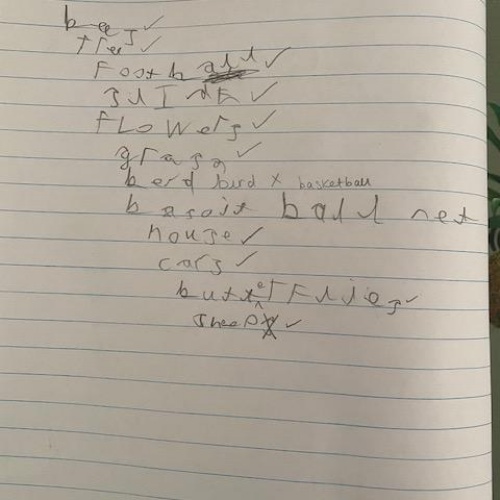 bees ✓
trees ✓
Footb all ✓
slIdE ✓
FLOWers ✓
grass ✓
berd bird x basketball
basoit ball net
house ✓
cars ✓
butterFlies ✓
sheep ✓